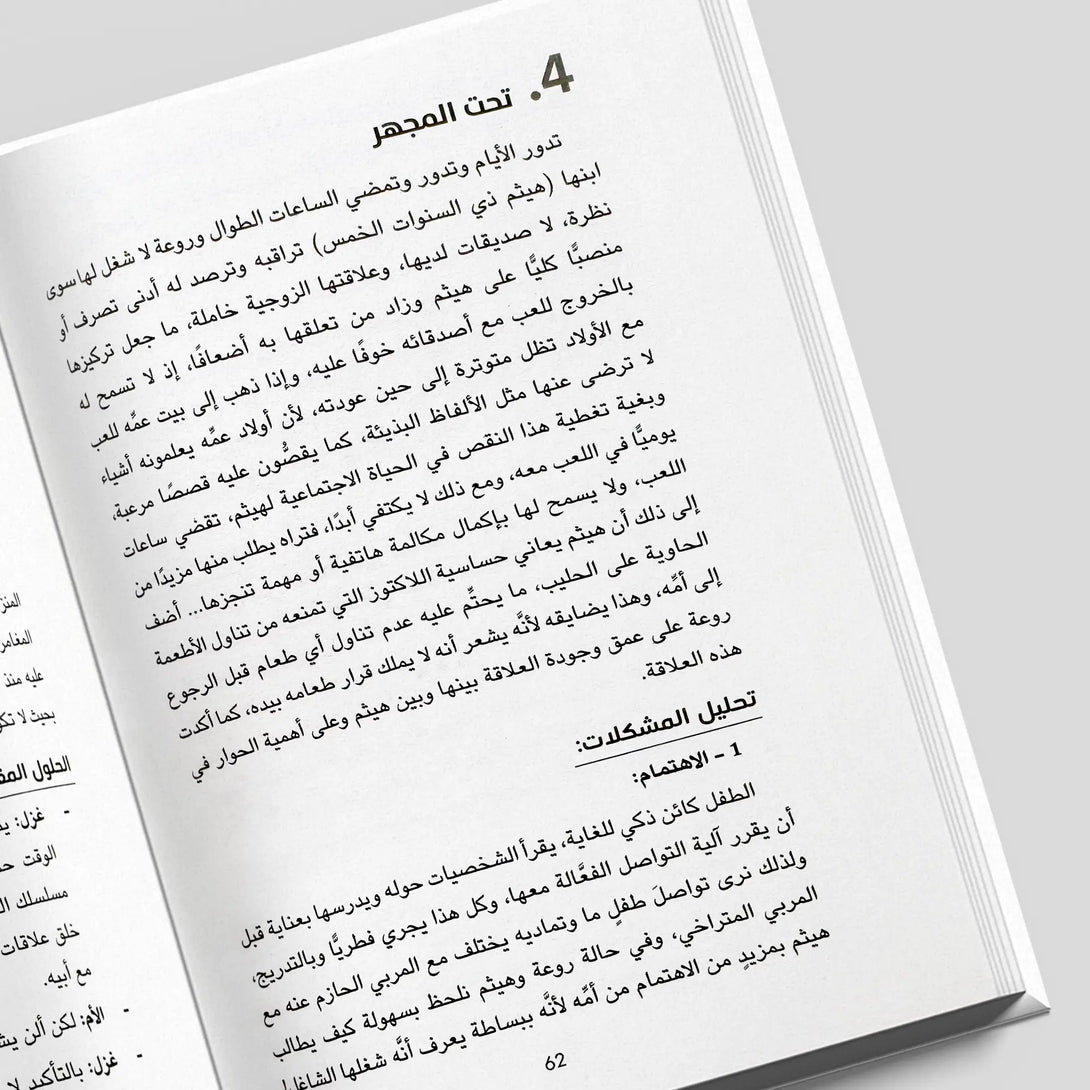 4. تحت المجهر
تدور الأيام وتدور وتمضي الساعات الطوال وروعة لا شغل لها سوى
ابنها (هيثم ذي السنوات الخمس) تراقبه وترصد له أدنى تصرف أو
نظرة، لا صديقات لديها، وعلاقتها الزوجية خاملة، ما جعل تركيزها
منصبًّا كليًّا على هيثم وزاد من تعلقها به أضعافًا، إذ لا تسمح له
بالخروج للعب مع أصدقائه خوفًا عليه، وإذا ذهب إلى بيت عمِّه للعب
مع الأولاد تظل متوترة إلى حين عودته، لأن أولاد عمِّه يعلمونه أشياء
لا ترضى عنها مثل الألفاظ البذيئة، كما يقصُّون عليه قصصًا مرعبة،
وبغية تغطية هذا النقص في الحياة الاجتماعية لهيثم، تقضي ساعات
يوميًّا في اللعب معه، ومع ذلك لا يكتفي أبدًا، فتراه يطلب منها مزيدًا من
اللعب، ولا يسمح لها بإكمال مكالمة هاتفية أو مهمة تنجزها... أضف
إلى ذلك أن هيثم يعاني حساسية اللاكتوز التي تمنعه من تناول الأطعمة
الحاوية على الحليب، ما يحتِّم عليه عدم تناول أي طعام قبل الرجوع
إلى أمِّه، وهذا يضايقه لأنَّه يشعر أنه لا يملك قرار طعامه بيده، كما أكدت
روعة على عمق وجودة العلاقة بينها وبين هيثم وعلى أهمية الحوار في
هذه العلاقة.
تحليل المشكلات:
1 – الاهتمام:
الطفل كائن ذكي للغاية، يقرأ الشخصيات حوله ويدرسها بعناية قبل
أن يقرر آلية التواصل الفعَّالة معها، وكل هذا يجري فطريًّا وبالتدريج،
ولذلك نرى تواصلَ طفلٍ ما وتماديه يختلف مع المربي الحازم عنه مع
المربي المتراخي، وفي حالة روعة وهيثم نلحظ بسهولة كيف يطالب
هيثم بمزيدٍ من الاهتمام من أمِّه لأنَّه ببساطة يعرف أنَّه شغلها الشاغل!
62
عليه منذ
بحيث لا
الحلول
- غزل:
الوقت
مسلسلك
خلق علاقات
مع أبيه.
- الأم: لكن ألن
- غزل: بالتأكيد لا